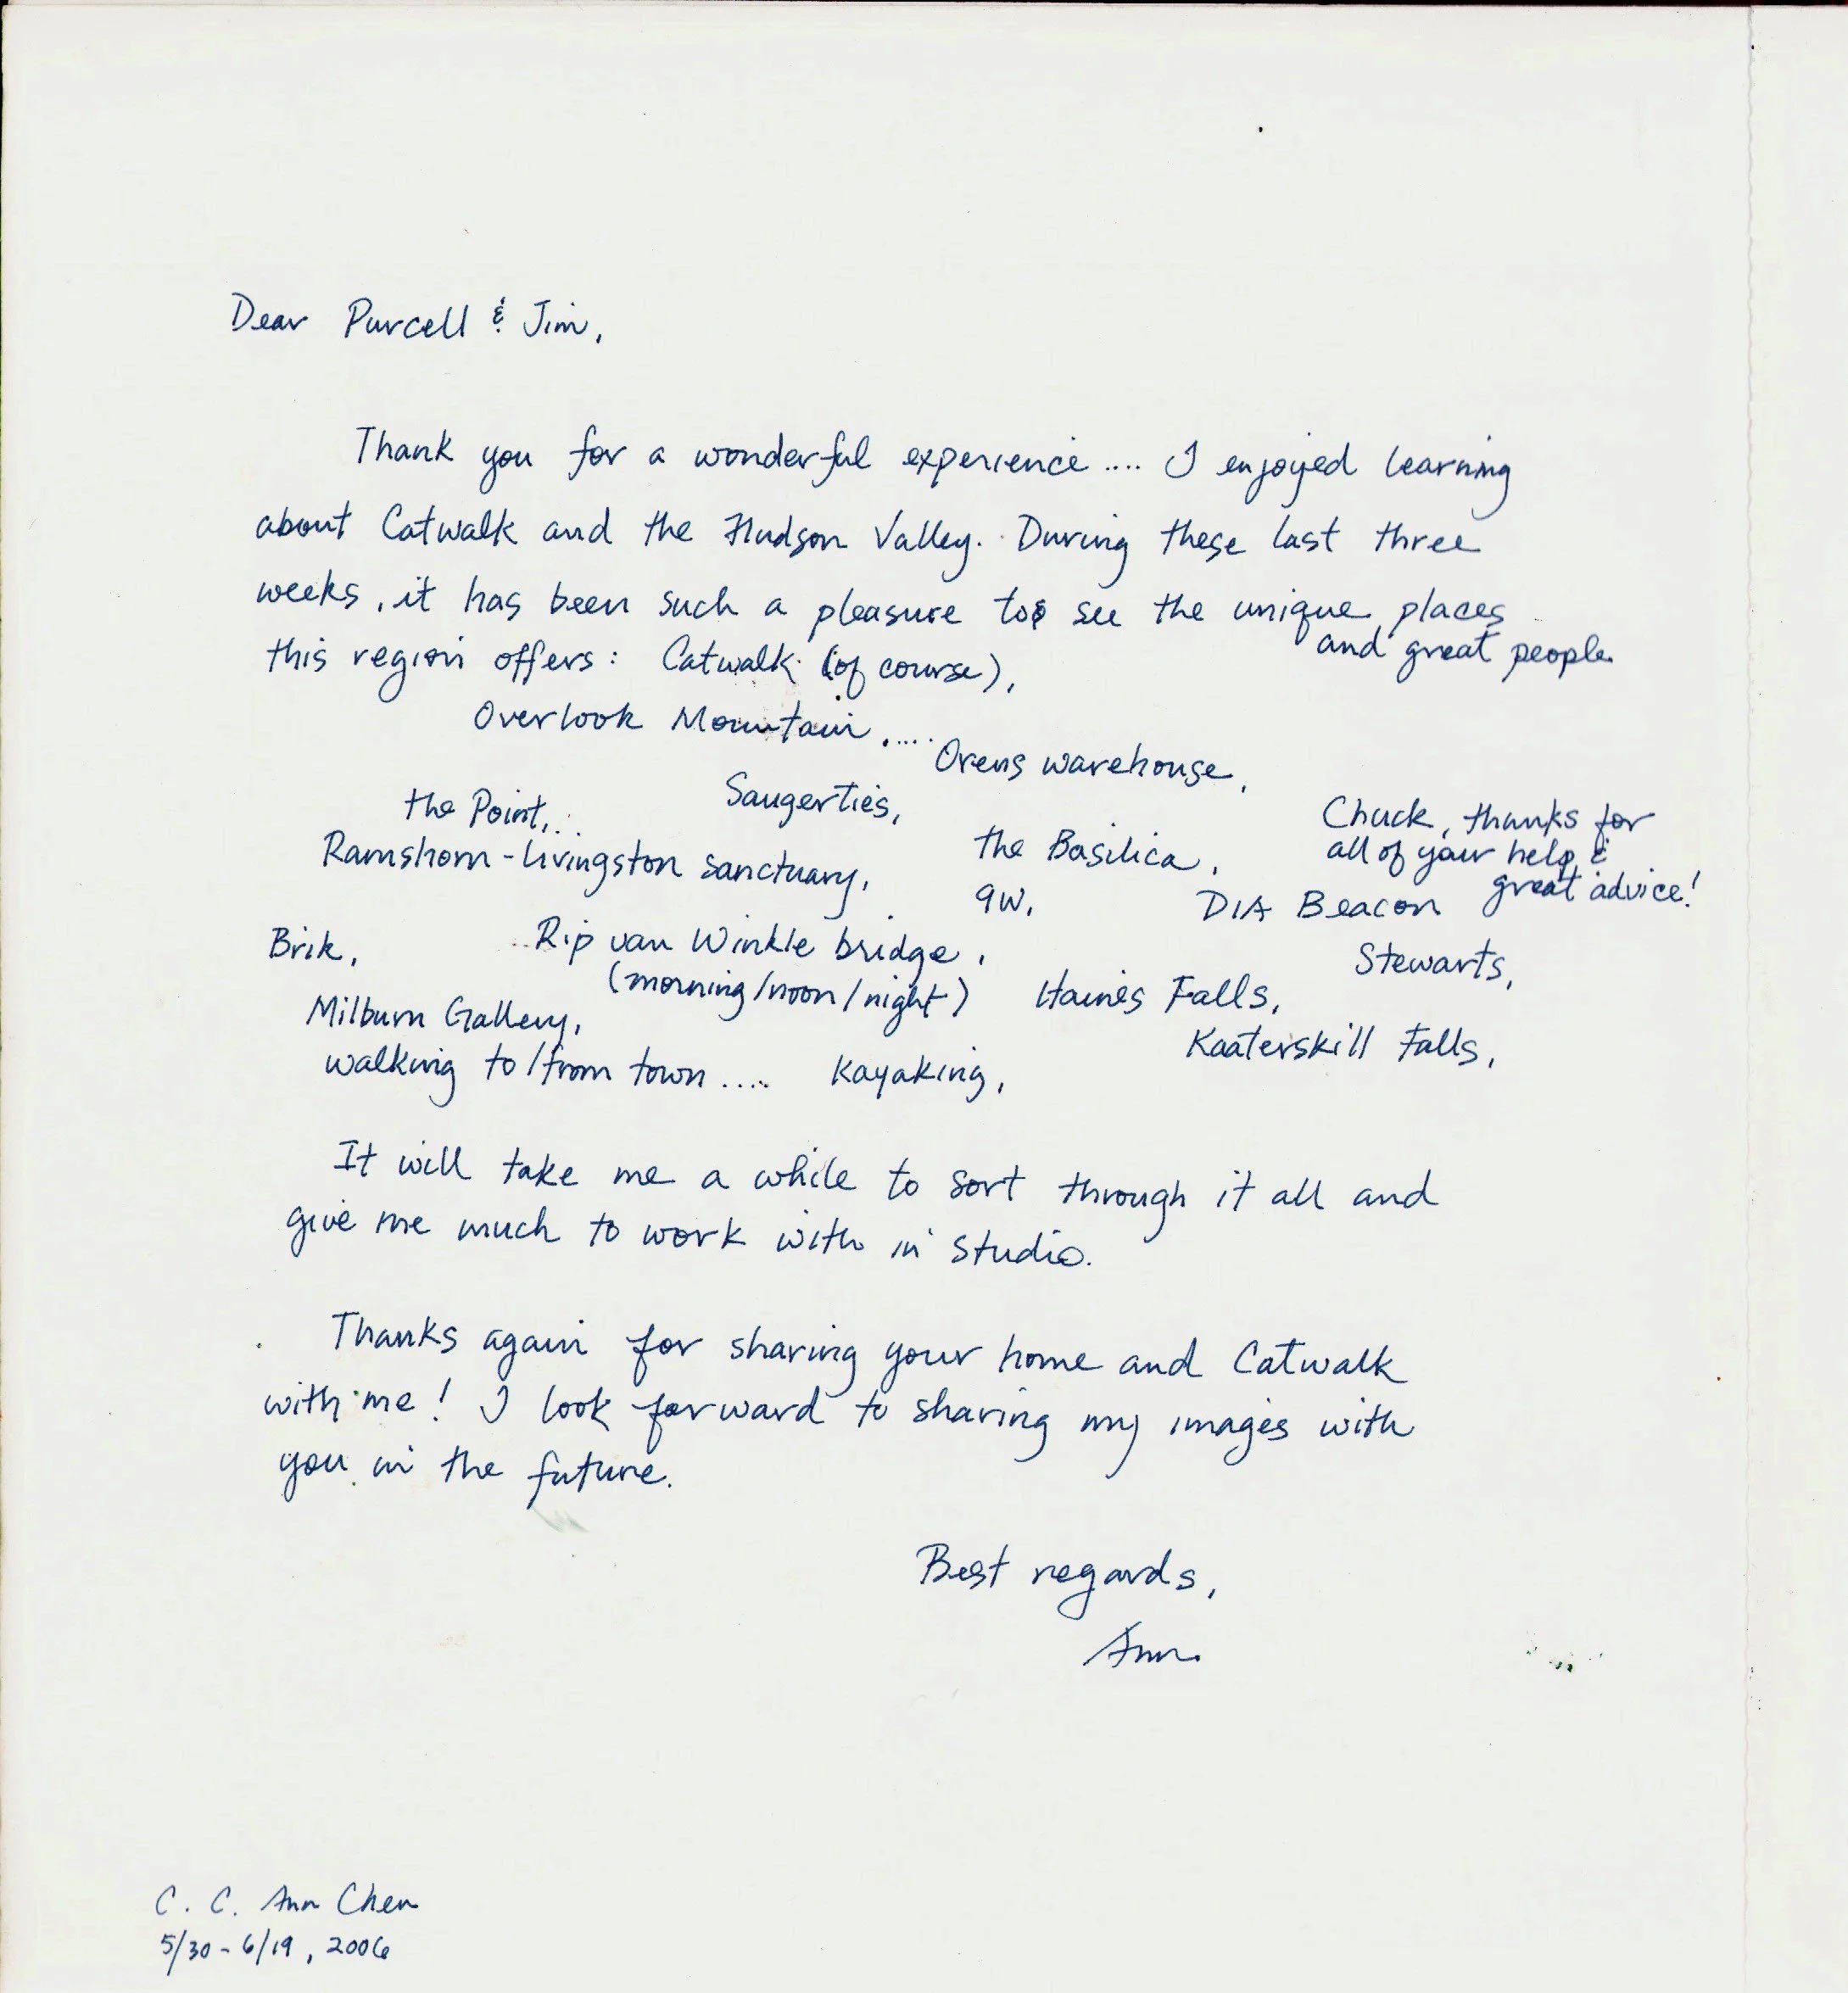 Dear Purcell & Jim,
Thank you for a wonderful experience .... I enjoyed learning
about Catwalk and the Hudson Valley. During these last three
weeks, it has been such a pleasure to see the unique places
and great people
this region offers: Catwalk (of course),
Overlook Mountain, ....
Orens warehouse,
the Point, ..
Saugerties,
Ramshorn-Livingston sanctuary,
the Basilica,
Chuck, thanks for
all of your help &
great advice!
9W,
DIA Beacon
Brik,
Rip van Winkle bridge,
(morning/noon/night)
Stewarts,
Milburn Gallery,
Haines Falls,
Kaaterskill Falls,
walking to/from town .... kayaking,
It will take me a while to sort through it all and
give me much to work with in studio.
Thanks again for sharing your home and Catwalk
with me! I look forward to sharing my images with
you in the future.
Best regards,
Ann.
C. C. Ann Chen
5/30 - 6/19, 2006